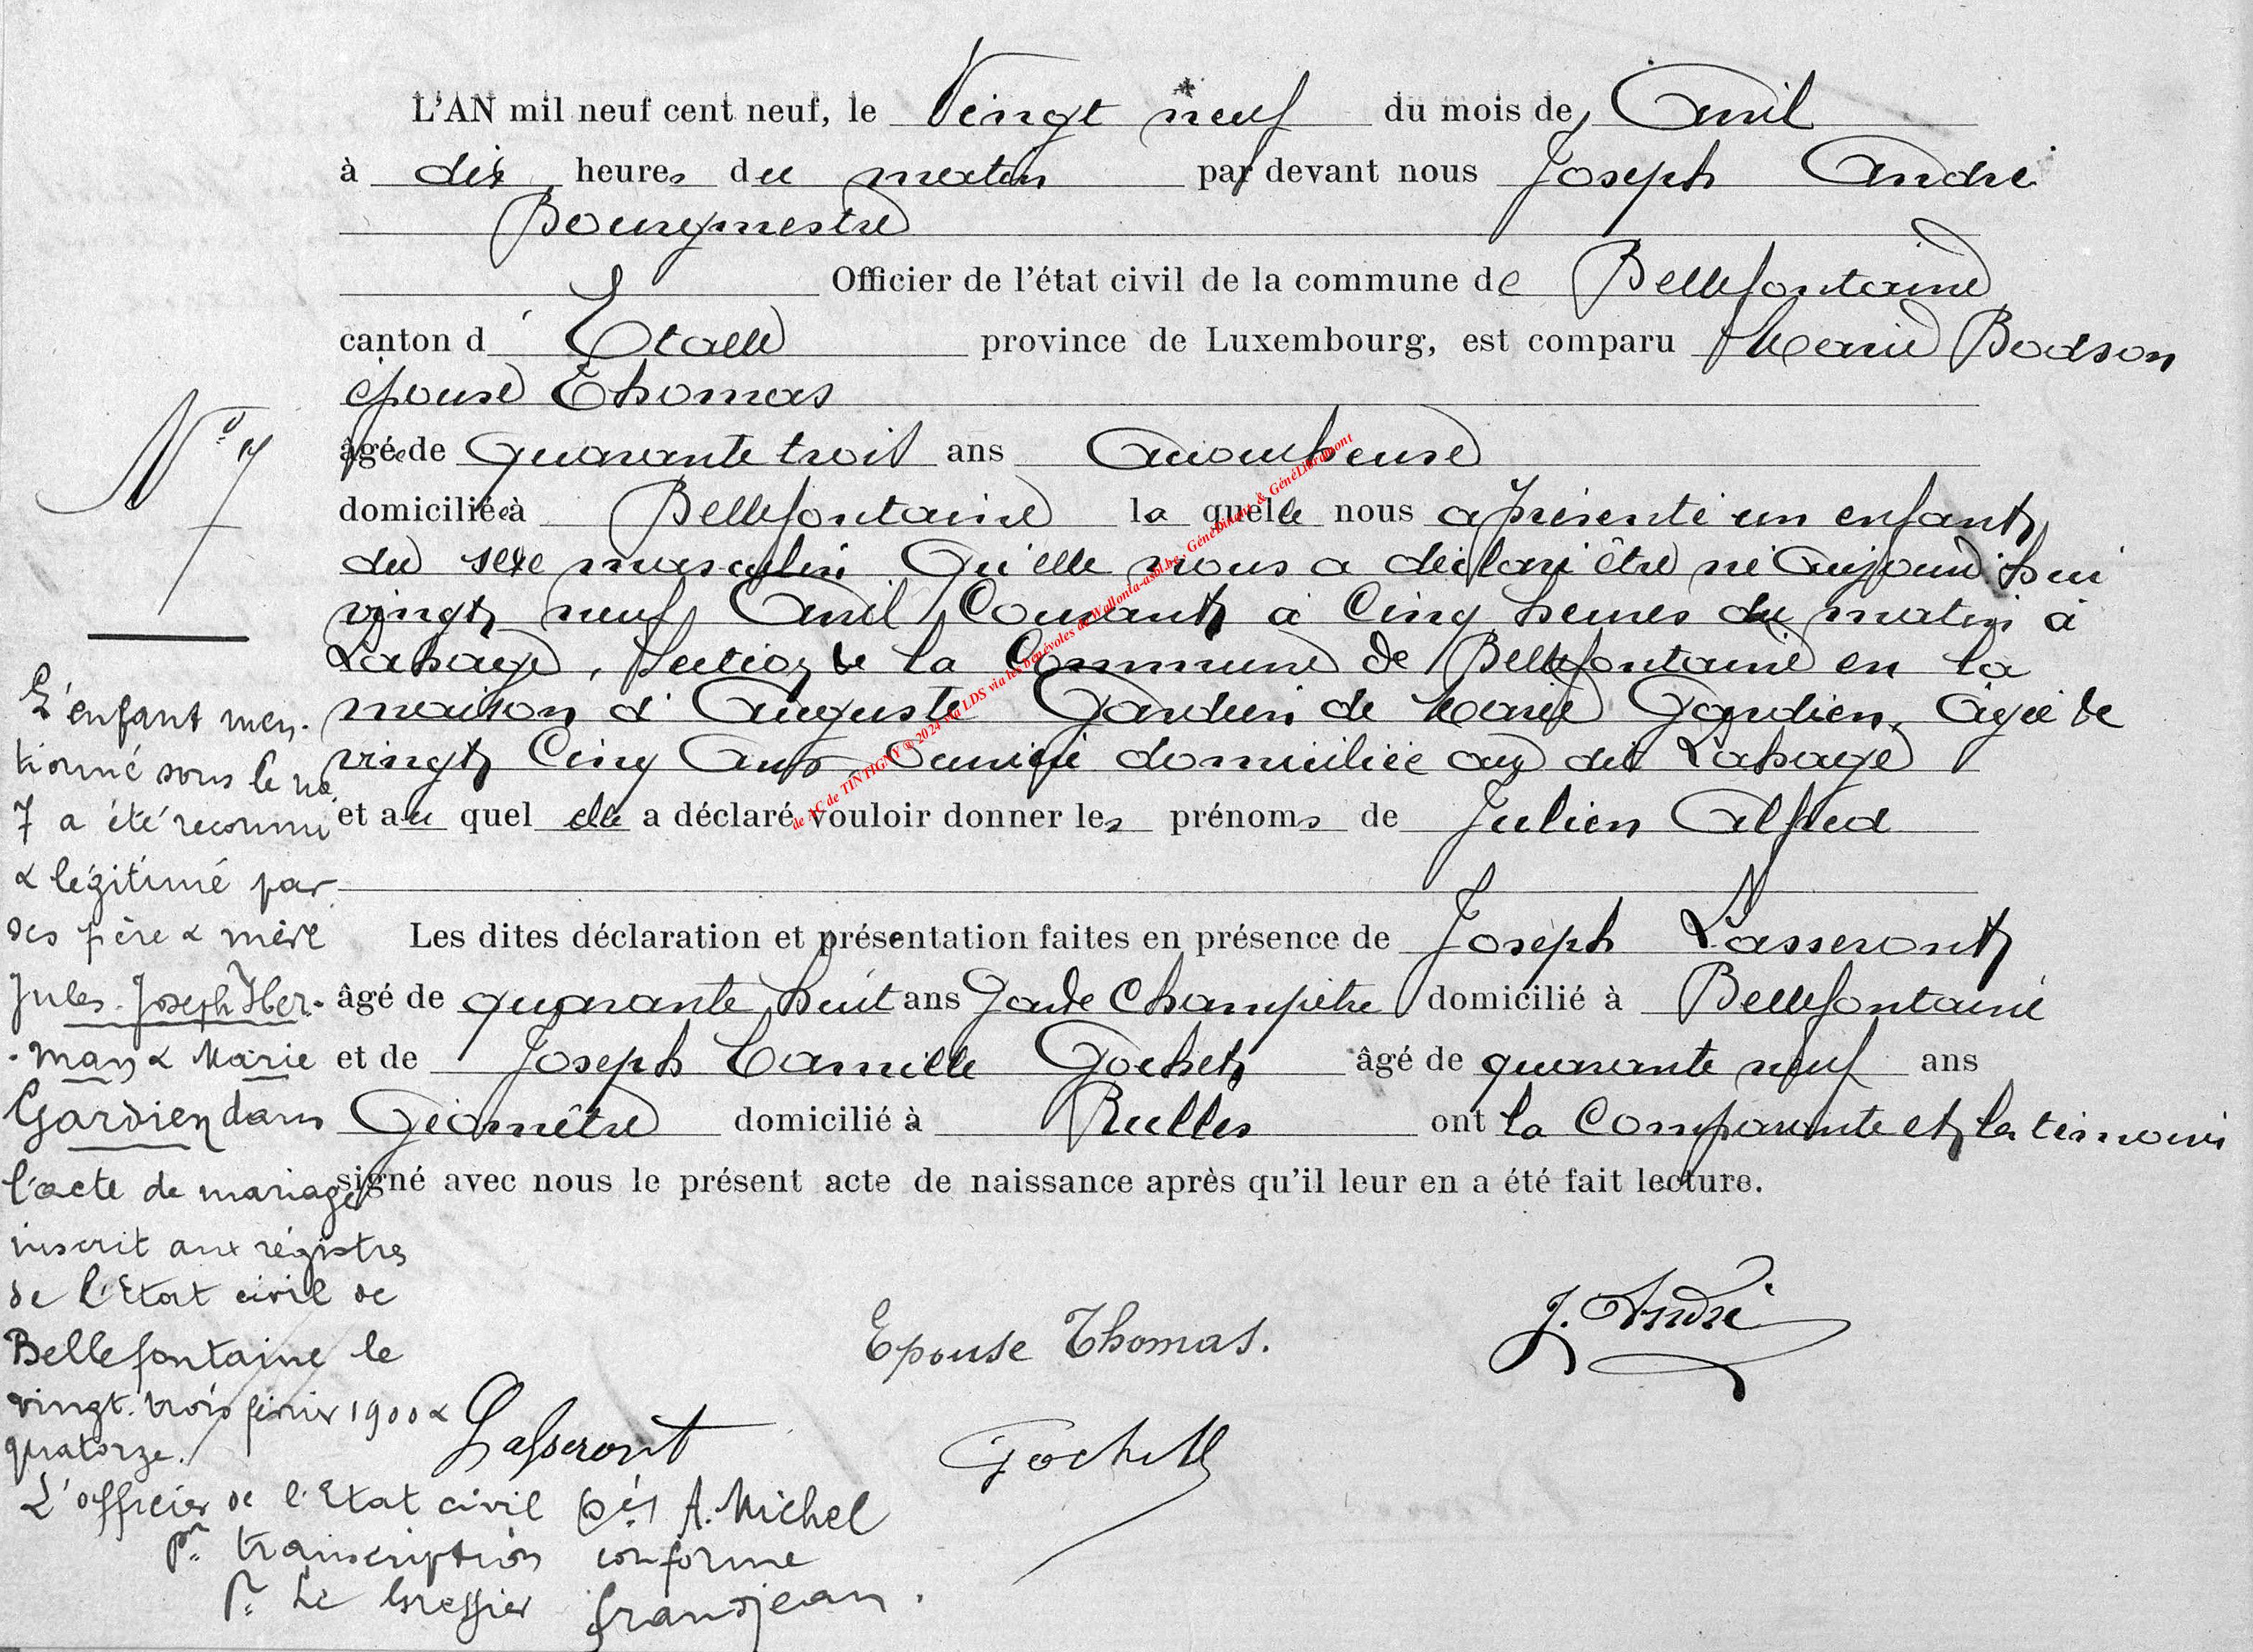 L'AN mil neuf cent neuf, le Vingt neuf du mois de Avril
à dix heures du matin par devant nous Joseph André
Bourgmestre
Officier de l'état civil de la commune de Bellefontaine
canton d'Etalle province de Luxembourg, est comparu Marie Bodson
épouse Thomas
âgée de quarante trois ans Accoucheuse
domiciliée à Bellefontaine la quelle nous a présenté un enfant
du sexe masculin Qu'elle nous a déclaré être né Aujourd'hui
vingt neuf Avril Courant à Cinq heures du matin à
Lahage, Section de la Commune de Bellefontaine en la
maison d'Auguste Gardien de Marie Gardien, Agée de
vingt Cinq Ans domiciliée au dit Lahage
et au quel elle a déclaré vouloir donner les prénoms de Julien Alfred
Les dites déclaration et présentation faites en présence de Joseph Lasseront
âgé de quarante huit ans Garde Champêtre domicilié à Bellefontaine
et de Joseph Camille Gochet âgé de quarante neuf ans
Géomètre domicilié à Rulles ont la Comparante et les témoins
signé avec nous le présent acte de naissance après qu'il leur en a été fait lecture.
Epouse Thomas.
J. André
Lasseront
Gochet
No 7
L'enfant men-
tionné sous le no
7 a été reconnu
& légitimé par
ses père & mère
Jules-Joseph Her-
-man & Marie
Gardien dans
l'acte de mariage
inscrit aux régistres
de l'Etat civil de
Bellefontaine le
vingt-trois février 1900 &
quatorze.
L'officier de l'Etat civil (sé) A. Michel
pr transcription conforme
pr Le Greffier Grandjean.
de AC de TINTIGNY @ 2024 via LDS via les bénévoles de Wallonia-asbl.be, GénéDinant & GénéLibramont